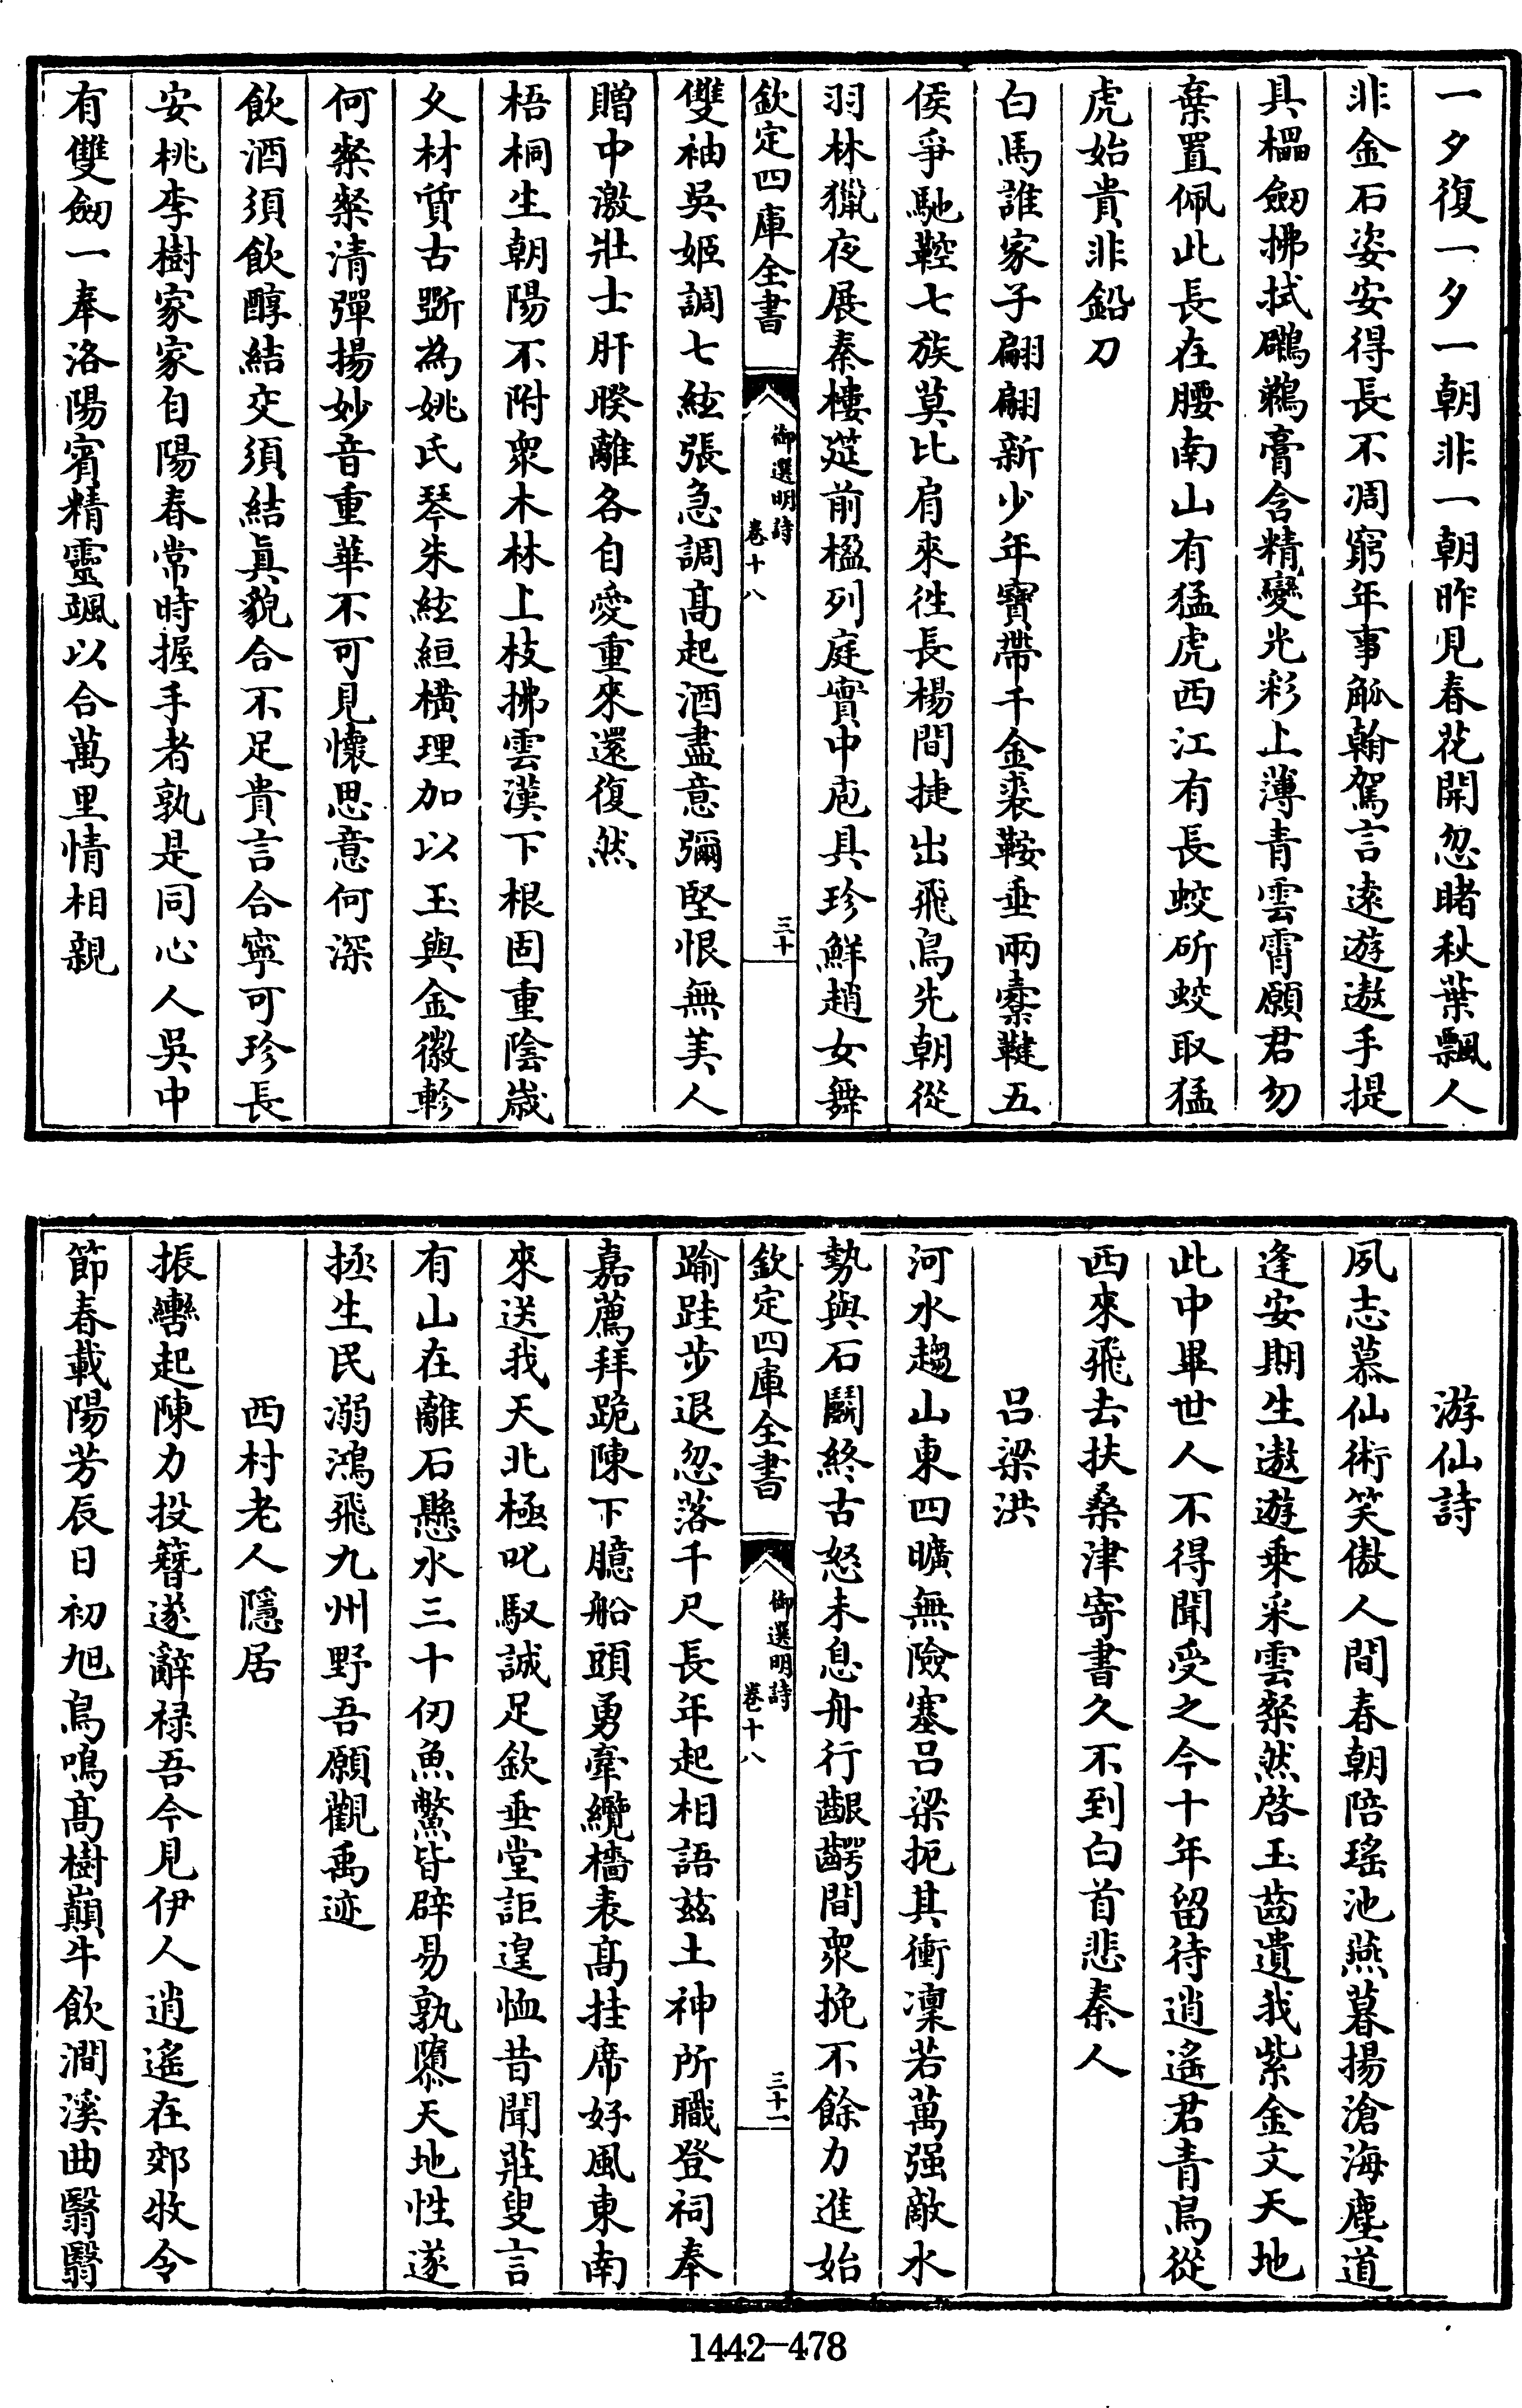 一夕復一夕一朝非一朝昨見春花開忽睹秋葉飄人
非金石姿安得長不凋窮年事觚翰駕言遠遊遨手提
具櫑劒拂拭鸊鵜膏含精變光彩上薄青雲霄願君勿
棄置佩此長在腰南山有猛虎西江有長蛟斫蛟取猛
虎始貴非鉛刀
白馬誰家子翩翩新少年寶帶千金裘鞍垂兩櫜鞬五
侯爭馳鞚七族莫比肩來徃長楊間捷出飛鳥先朝從
羽林獵夜展秦樓筵前楹列庭實中庖具珍鮮趙女舞
欽定四庫全書
御選明詩
卷十八
三十
雙袖吳姬調七絃張急調髙起酒盡意彌堅恨無美人
贈中激壯士肝暌離各自愛重來還復然
梧桐生朝陽不附衆木林上枝拂雲漢下根固重陰嵗
久材質古斲為姚氏琴朱絃絙橫理加以玉與金徽軫
何粲粲清彈揚妙音重華不可見懷思意何深
飲酒須飲醇結交須結眞貌合不足貴言合寧可珍長
安桃李樹家家自陽春常時握手者孰是同心人吳中
有雙劒一奉洛陽賓精靈颯以合萬里情相親
游仙詩
夙志慕仙術笑傲人間春朝陪瑤池燕暮揚滄海塵道
逢安期生遨遊乗采雲粲然啓玉齒遺我紫金文天地
此中畢世人不得聞受之今十年留待逍遙君青鳥從
西來飛去扶桑津寄書久不到白首悲秦人
吕梁洪
河水趨山東四曠無險塞吕梁扼其衝凜若萬强敵水
勢與石鬭終古怒未息舟行齦齶間衆挽不餘力進始
欽定四庫全書
御選明詩
卷十八
三十一
踰跬步退忽落千尺長年起相語兹土神所職登祠奉
嘉薦拜跪陳下臆船頭勇牽纜檣表髙挂席好風東南
來送我天北極叱馭誠足欽垂堂詎遑恤昔聞莊叟言
有山在離石懸水三十仞魚鱉皆辟易孰隳天地性遂
拯生民溺鴻飛九州野吾願觀禹迹
西村老人隱居
振轡起陳力投簪遂辭禄吾今見伊人逍遙在郊牧令
節春載陽芳辰日初旭鳥鳴髙樹巔牛飲澗溪曲翳翳
1442-478